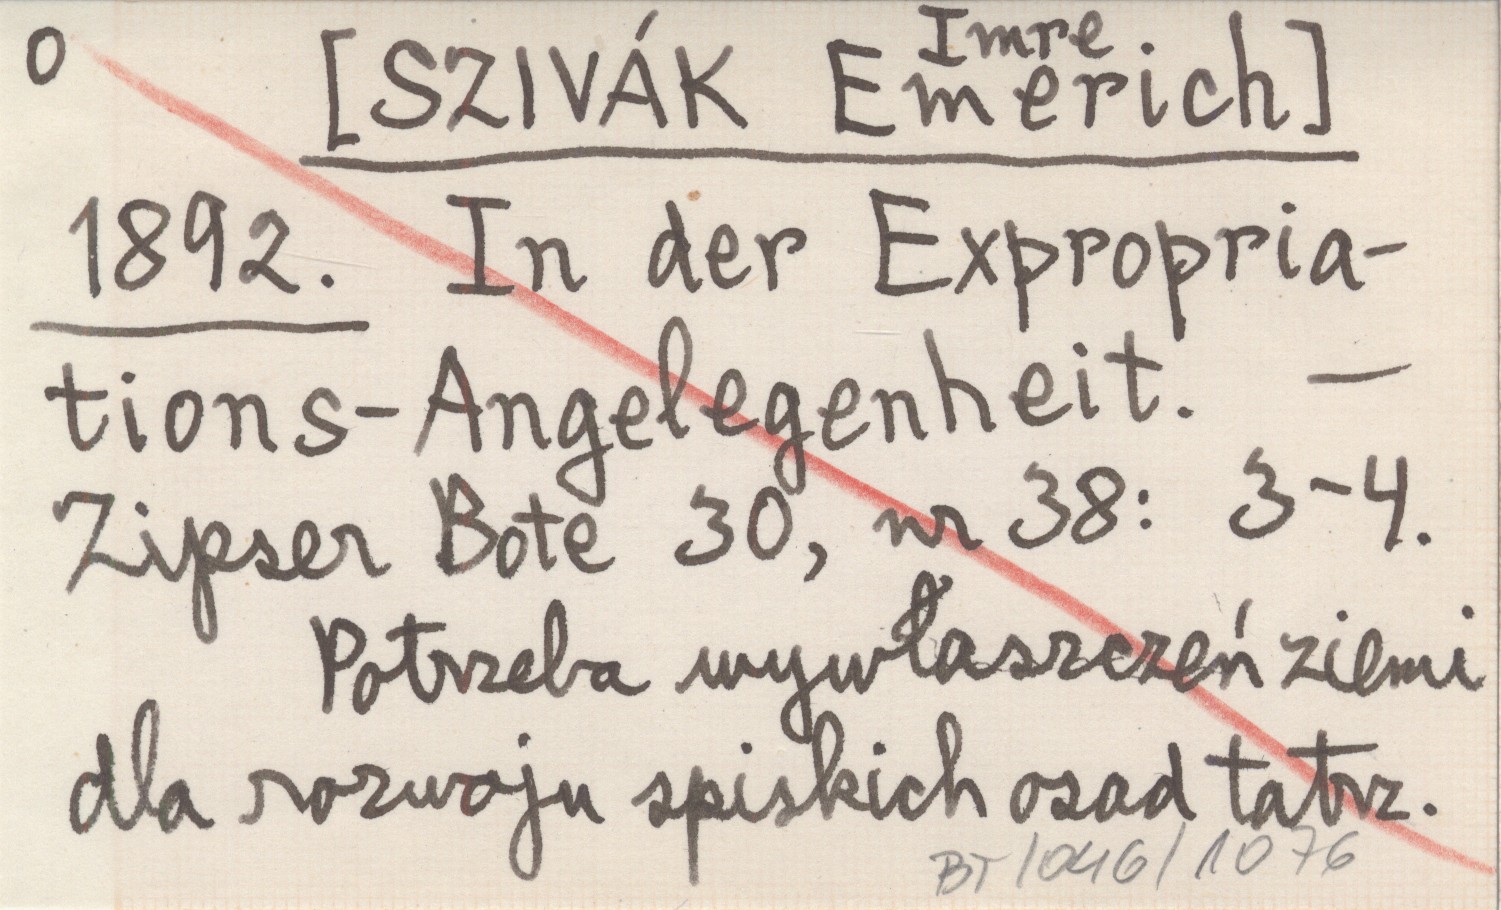 o
Imre.
[SZIVÁK Emerich]
1892. In der Expropria-
tions-Angelegenheit. —
Zipser Bote 30, nr 38: 3-4.
Potrzeba wywłaszczeń ziemi
dla rozwoju spiskich osad tatrz.
BT/046/1076